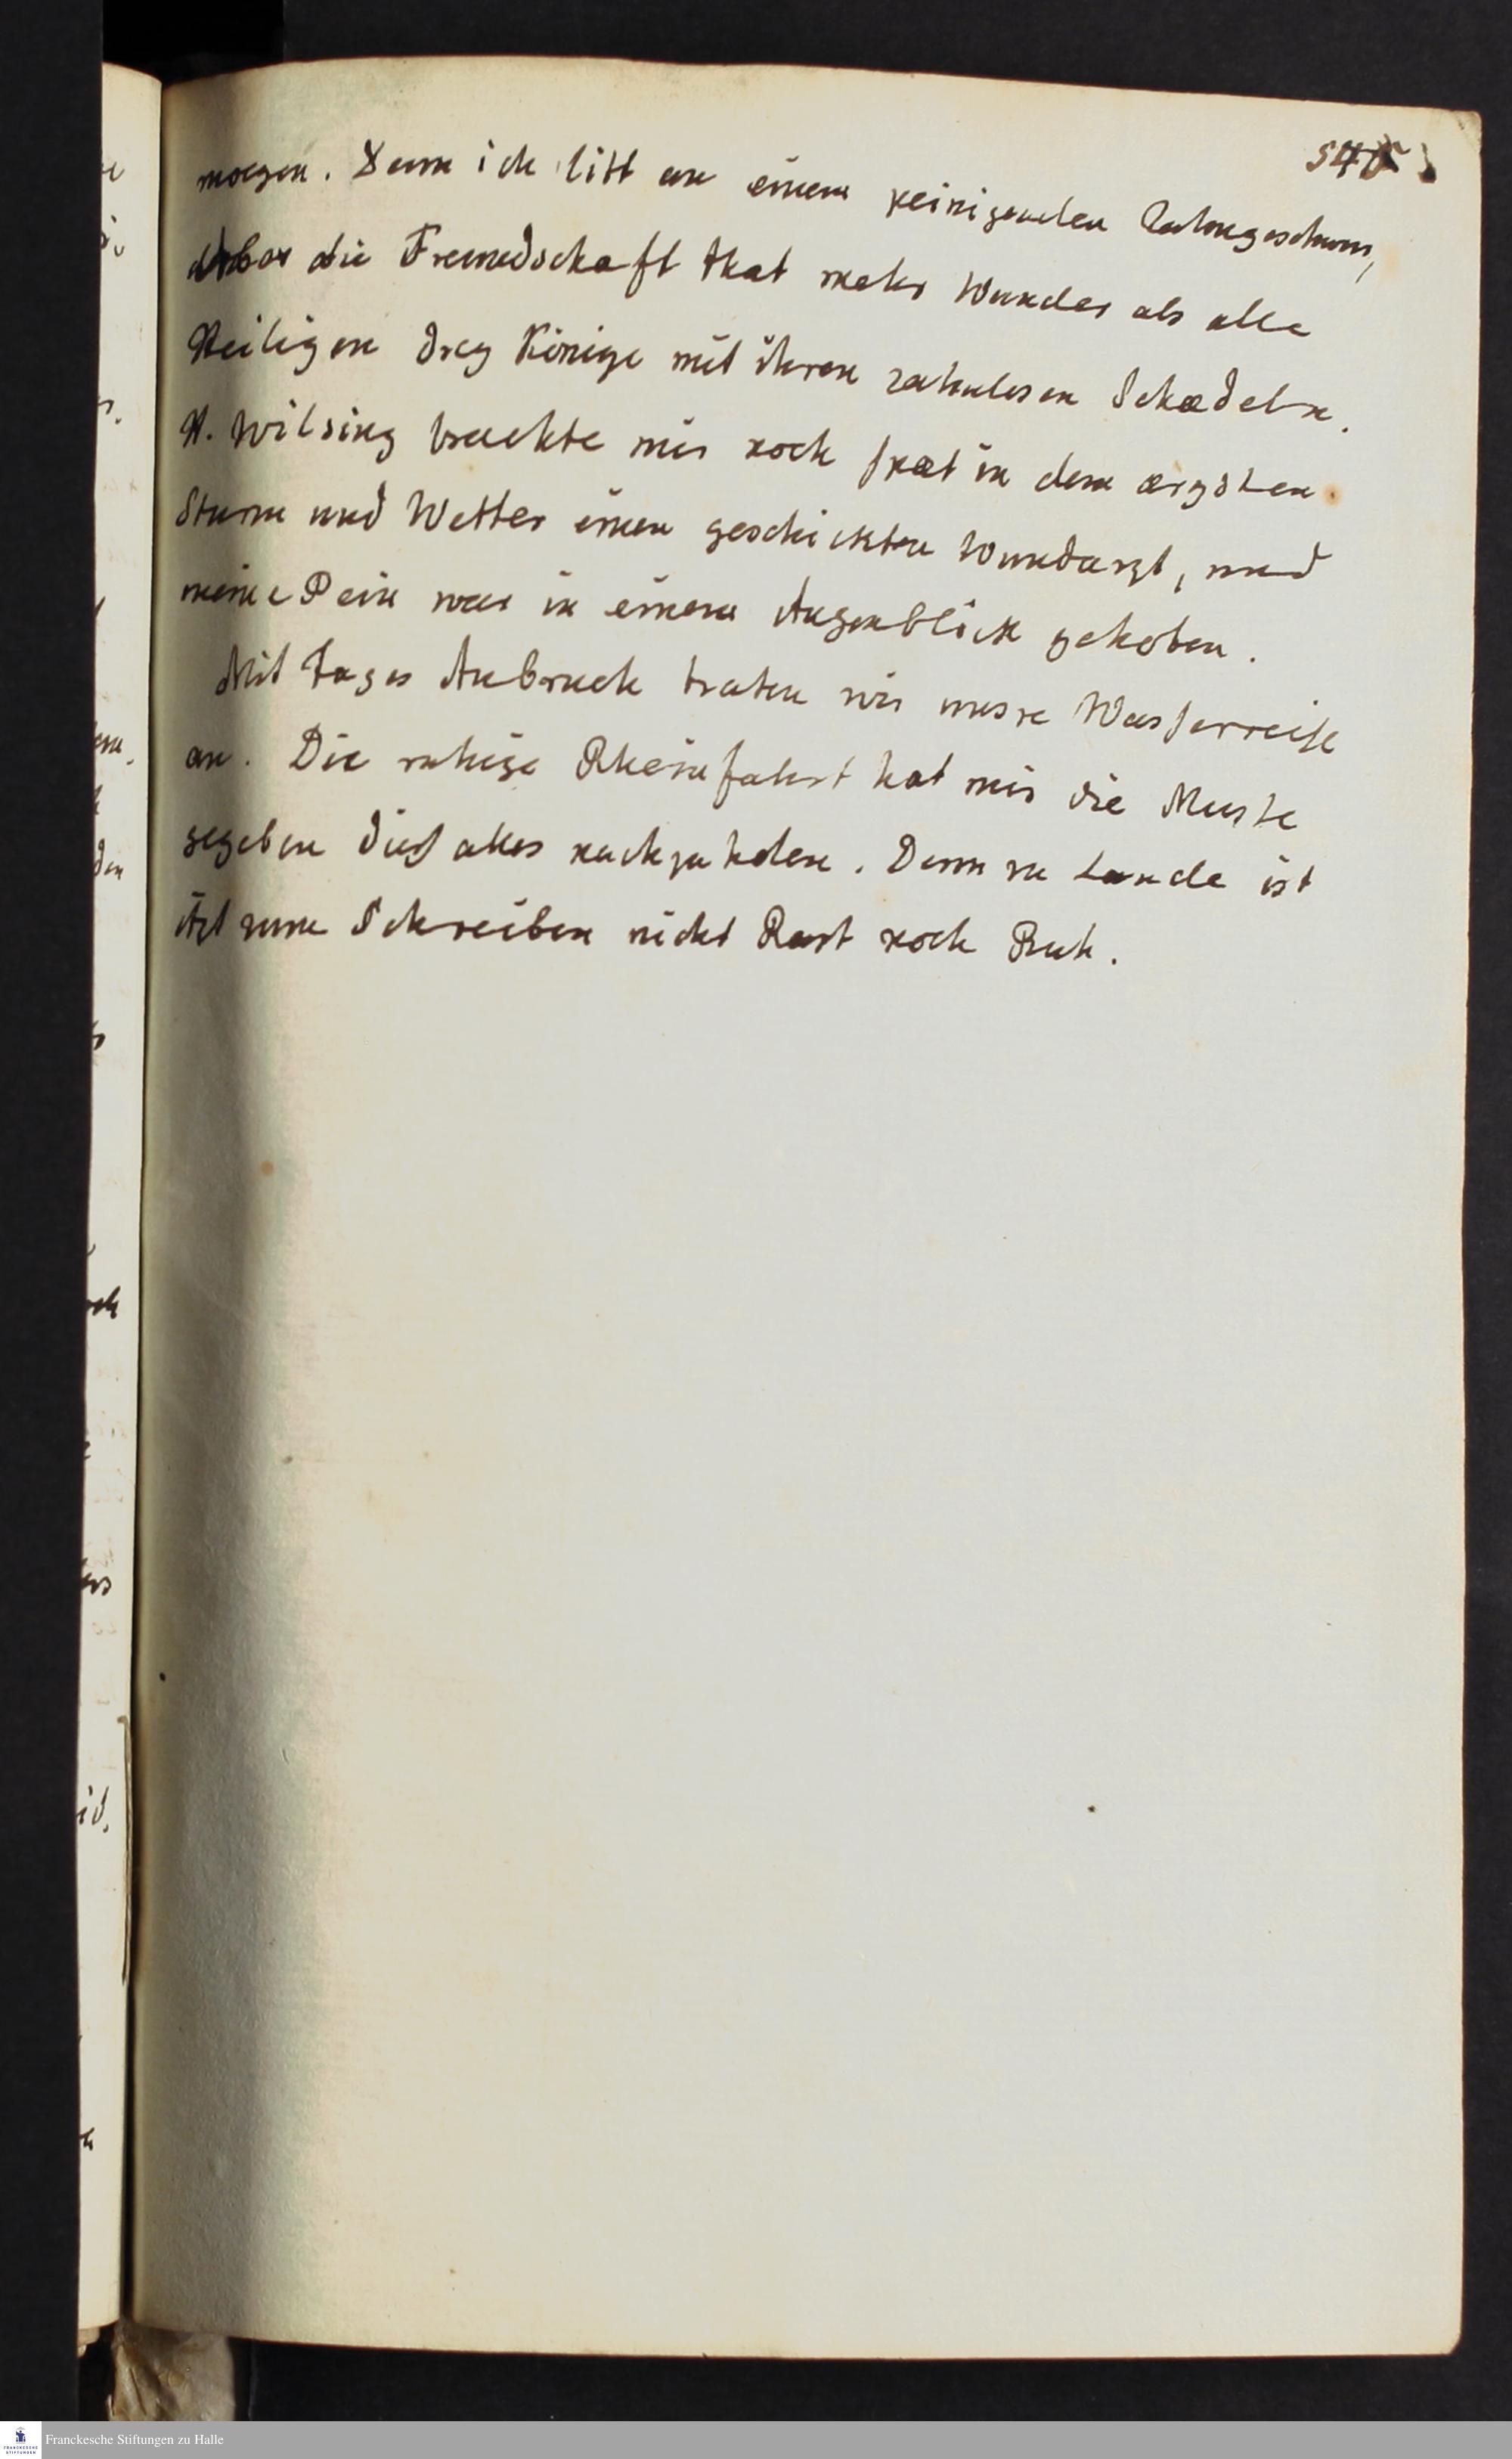 545
moegen. Denn ich litt an einem peinigenden Zahngeschwur,
Aber die Freundschaft that mehr Wunder als alle
Heiligen drey Könige mit ihren zahnlosen Schædeln.
H. Wilsing brachte mir noch spæt in dem ærgsten
Sturm und Wetter einen geschickten Wundarzt, und
meine Pein war in einem Augenblick gehoben.
Mit Tages Anbruch traten wir unsre Wasserreise
an. Die ruhige Rheinfahrt hat mir die Musse
gegeben dies alles nachzuholen. Denn zu Lande ist
itzt zum Schreiben nicht Rast noch Ruh.
Franckesche Stiftungen zu Halle